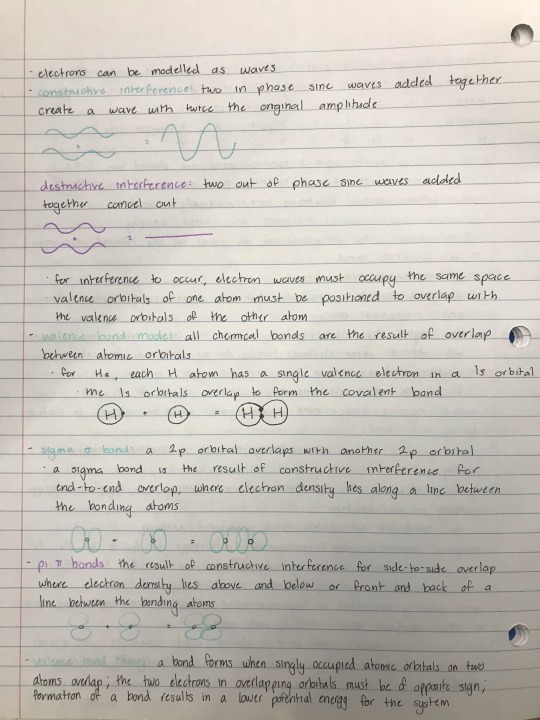 - electrons can be modelled as waves
- constructive interference: two in phase sine waves added together
create a wave with twice the original amplitude
+ =
destructive interference: two out of phase sine waves added
together cancel out
+ =
· for interference to occur, electron waves must occupy the same space
valence orbitals of one atom must be positioned to overlap with
the valence orbitals of the other atom
- valence bond model: all chemical bonds are the result of overlap
between atomic orbitals
· for H₂, each H atom has a single valence electron in a 1s orbital
· the 1s orbitals overlap to form the covalent bond
H + H = H H
- sigma σ bond: a 2p orbital overlaps with another 2p orbital
· a sigma bond is the result of constructive interference for
end-to-end overlap, where electron density lies along a line between
the bonding atoms
+ =
- pi π bonds: the result of constructive interference for side-to-side overlap
where electron density lies above and below or front and back of a
line between the bonding atoms
+ =
- valence bond theory: a bond forms when singly occupied atomic orbitals on two
atoms overlap; the two electrons in overlapping orbitals must be of opposite sign;
formation of a bond results in a lower potential energy for the system